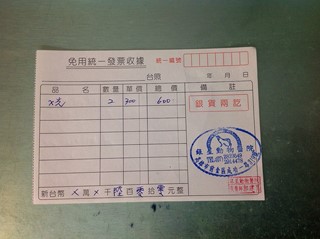 免用統一發票收據
統一編號
台照 年 月 日
品名 數量 單價 總價 備註
X光 2 300 600
銀貨兩訖
動物醫院
新台幣 X 萬 X 千 陸 百 零 拾 零 元整